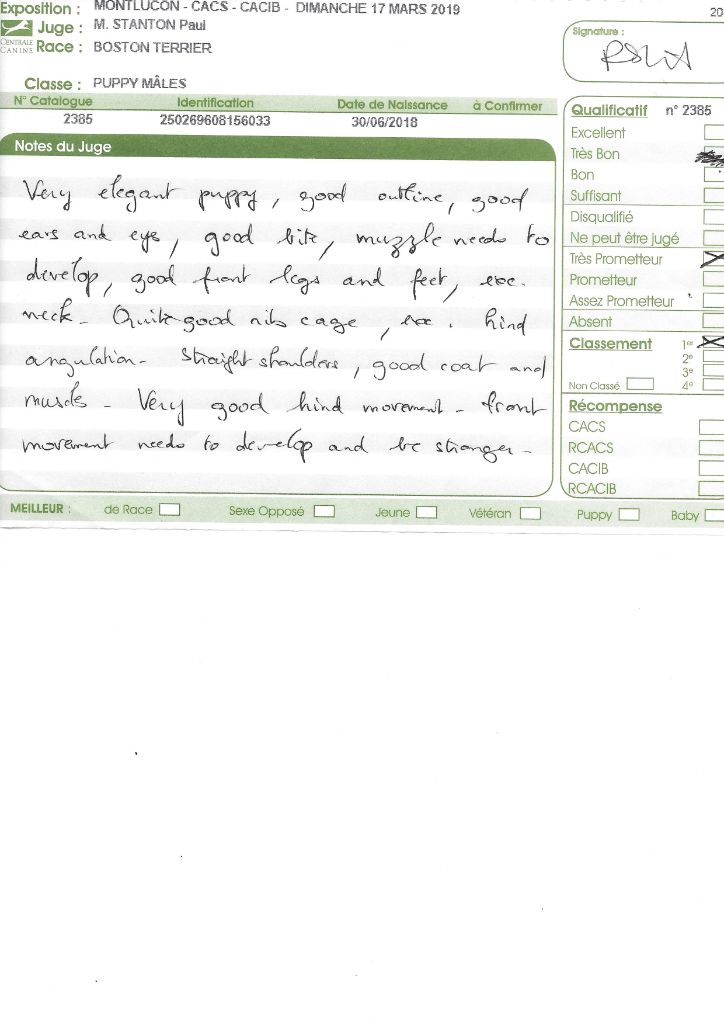 Exposition : MONTLUCON - CACS - CACIB - DIMANCHE 17 MARS 2019
20
Juge : M. STANTON Paul
CENTRALE CANINE
Race : BOSTON TERRIER
Signature :
Classe : PUPPY MÂLES
N° Catalogue Identification Date de Naissance à Confirmer
2385 250269608156033 30/06/2018
Notes du Juge
Very elegant puppy, good outline, good
ears and eye, good bite, muzzle needs to
develop, good front legs and feet, exc.
neck - Quite good rib cage, exc. hind
angulation - Straight shoulders, good coat and
muscls - Very good hind movement - front
movement needs to develop and be stronger -
Qualificatif n° 2385
Excellent
Très Bon
Bon
Suffisant
Disqualifié
Ne peut être jugé
Très Prometteur
Prometteur
Assez Prometteur
Absent
Classement 1er
2e
3e
Non Classé 4e
Récompense
CACS
RCACS
CACIB
RCACIB
MEILLEUR : de Race Sexe Opposé Jeune Vétéran Puppy Baby